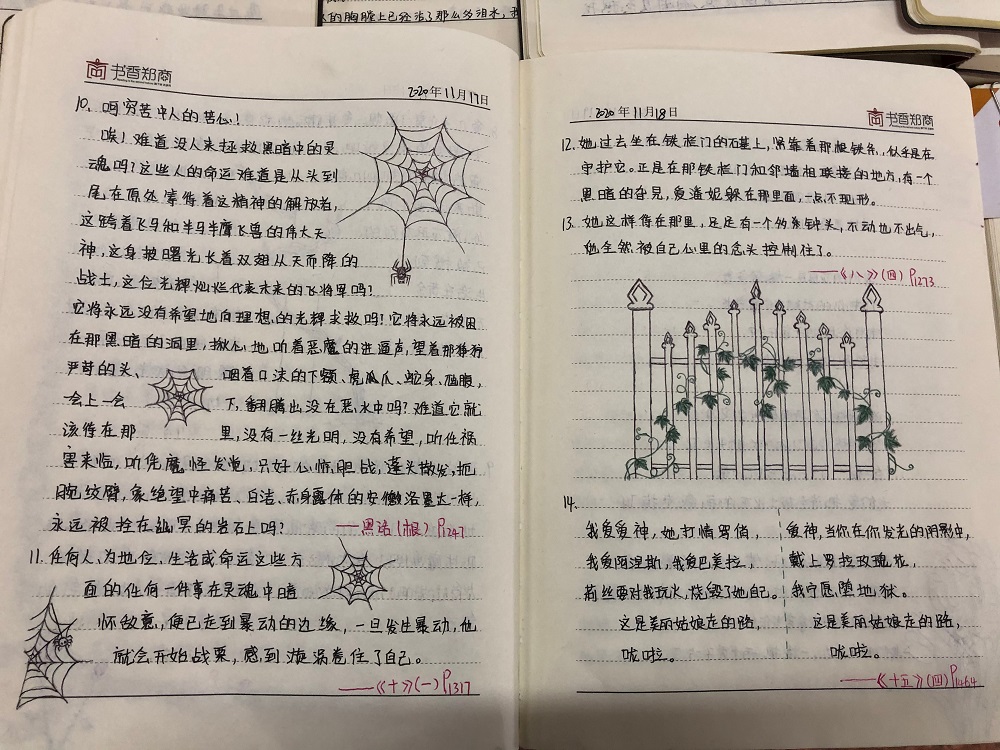 的胸膛上已经沾了那么多泪水，我
书香郑商
2020年11月17日
10. 呜穷苦中人的苦心！
唉！难道没人来拯救黑暗中的灵
魂吗？这些人的命运难道是从头到
尾在原处等待着这精神的解放者，
这跨着飞马和半马半鹰飞兽的伟大天
神，这身披曙光长着双翅从天而降的
战士，这位光辉灿烂代表未来的飞将军吗？
它将永远没有希望地向理想的光辉求救吗！它将永远被困
在那黑暗的洞里，揪心地听着恶魔的进逼声，望着那狰狞
严苛的头、咽着口沫的下颚、虎爪爪、蛇身、血腹，
一会上一会下，翻腾出没在恶水中吗？难道它就
该待在那里，没有一丝光明，没有希望，听任祸
害来临，听凭魔怪发觉，只好心惊胆战，蓬头散发，扼
腕绞臂，象绝望中痛苦、白洁、赤身露体的安傲洛墨达一样，
永远被拴在幽冥的岩石上吗？
——黑话(根) P1247
11. 任何人、为地位、生活或命运这些方
面的任何一件事在灵魂中暗
怀敌意，便已走到暴动的边缘，一旦发生暴动，他
就会开始战栗，感到漩涡卷住了自己。
——《十》(一) P1317
2020年11月18日
书香郑商
12. 她过去坐在铁栏门的石基上，紧靠着那根铁条，似乎是在
守护它。正是在那铁栏门和邻墙相联接的地方，有一个
黑暗的旮旯，爱潘妮躲在那里面，一点不现形。
13. 她这样待在那里，足足有一个多条钟头，不动也不出气，
她全然被自己心里的念头控制住了。
——《八》(四) P1273
14.
我爱爱神，她打情骂俏，
我爱阿涅斯，我爱巴美拉，
莉丝要对我玩火，烧毁了她自己。
这是美丽姑娘走的路，
咙啦。
爱神，当你在你发光的阴影中，
戴上罗拉玫瑰花，
我宁愿堕地狱。
这是美丽姑娘走的路，
咙啦。
——《十五》(四) P1464